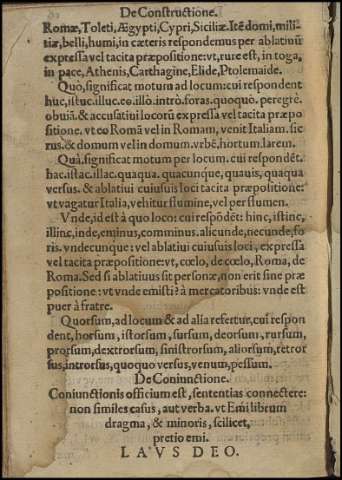 De Constructione.
Romæ, Toleti, Ægypti, Cypri, Siciliæ. Itē domi, mili-
tiæ, belli, humi, in cæteris respondemus per ablatiuū
expressa vel tacita præpositione: vt, rure est, in toga,
in pace, Athenis, Carthagine, Elide, Ptolemaide.
Quò, significat motum ad locum: cui respondent
huc, istuc. illuc. eo. illò. intrò. foras. quoquò. peregrè.
obuiā. & accusatiui locorū expressa vel tacita præpo
sitione. vt eo Romā vel in Romam, venit Italiam. sic
rus. & domum vel in domum. vrbē, hortum. larem.
Quà. significat motum per locum. cui respondēt.
hac. istac. illac. quaqua. quacunque, quauis, quaqua
versus. & ablatiui cuiusuis loci tacita præpositione:
vt vagatur Italia, vehitur flumine, vel per flumen.
Vnde, id est à quo loco: cui respōdēt: hinc, istinc,
illinc, inde, eminus, comminus. alicunde, necunde, fo
ris. vndecunque: vel ablatiui cuiusuis loci, expressa
vel tacita præpositione: vt, cœlo, de cœlo, Roma, de
Roma. Sed si ablatiuus sit personæ, non erit sine præ
positione: vt vnde emisti? à mercatoribus: vnde est
puer à fratre.
Quorsum, ad locum & ad alia refertur, cui respon
dent, horsum, istorsum, sursum, deorsum, rursum,
prorsum, dextrorsum, sinistrorsum, aliorsum, retror
sus, introrsus, quoquo versus, venum, pessum.
De Coniunctione.
Coniunctionis officium est, sententias connectere:
non similes casus, aut verba. vt Emi librum
dragma, & minoris, scilicet,
pretio emi.
LAVS DEO.